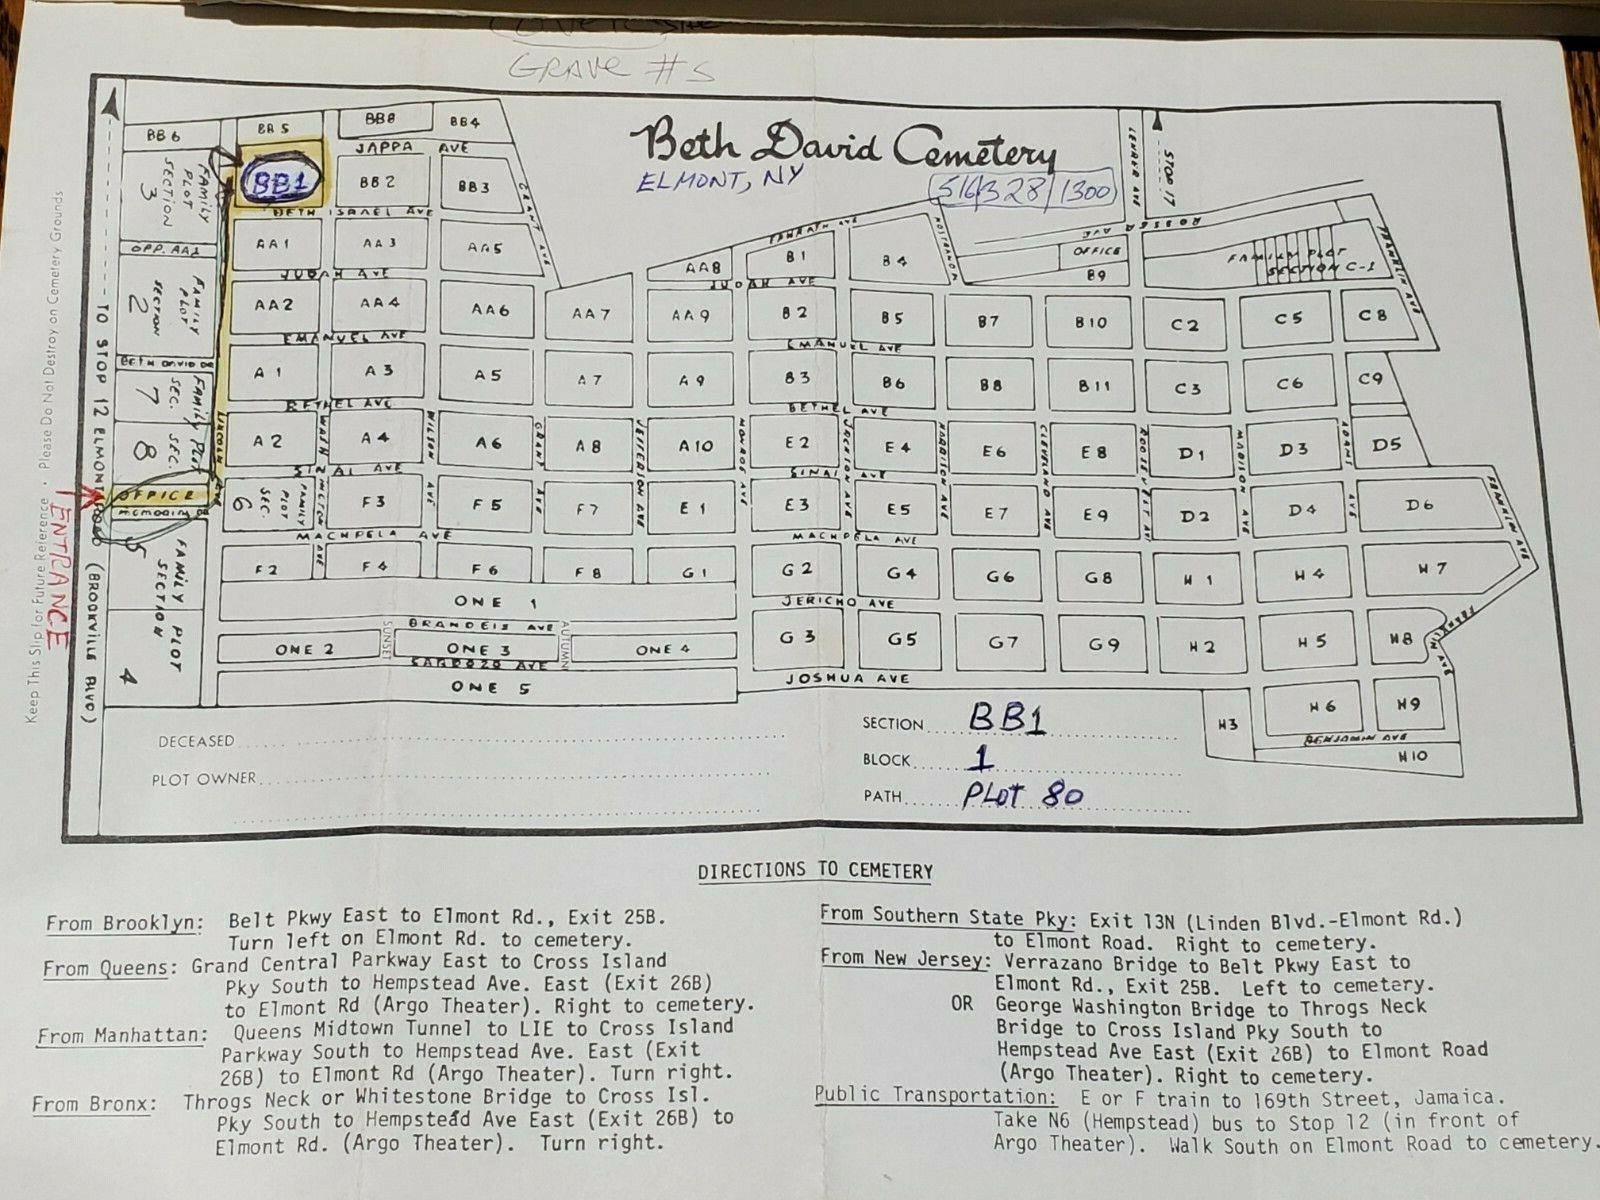 GRAVE #S
Beth David Cemetery
ELMONT, NY
516/328/1300
BB6
BB5
BB8
BB4
JAPPA AVE
BB1
BB2
BB3
GRANT AVE
BETH ISRAEL AVE
FAMILY PLOT SECTION 3
OPP. AA1
AA1
AA3
AA5
JUDAH AVE
FAMILY PLOT SECTION 2
AA2
AA4
AA6
AA7
AA8
AA9
EMANUEL AVE
BETH DAVID DR
LEHRER AVE
STOP 17
OFFICE
B9
FAMILY PLOT
SECTION C-1
FRANKLIN AVE
B1
B4
JUDAH AVE
B2
B5
B7
B10
C2
C5
C8
EMANUEL AVE
FAMILY PLOT SEC. 7
A1
A3
A5
A7
A9
B3
B6
B8
B11
C3
C6
C9
BETHEL AVE
BETHEL AVE
LINCOLN AVE
WASHINGTON AVE
WILSON AVE
GRANT AVE
JEFFERSON AVE
MONROE AVE
JACKSON AVE
HARRISON AVE
CLEVELAND AVE
ROOSEVELT AVE
MADISON AVE
ADAMS AVE
SEC. 8
A2
A4
A6
A8
A10
E2
E4
E6
E8
D1
D3
D5
SINAI AVE
SINAI AVE
OFFICE
FAMILY PLOT SEC. 6
F3
F5
F7
E1
E3
E5
E7
E9
D2
D4
D6
FRANKLIN AVE
MACHPELA AVE
MACHPELA AVE
5
FAMILY PLOT SECTION
F2
F4
F6
F8
G1
G2
G4
G6
G8
H1
H4
H7
ONE 1
JERICHO AVE
BRANDEIS AVE
SUNSET
AUTUMN
ONE 2
ONE 3
ONE 4
CARDOZO AVE
ONE 5
G3
G5
G7
G9
H2
H5
H8
FRANKLIN AVE
JOSHUA AVE
4
H3
H6
H9
BENJAMIN AVE
H10
TO STOP 12 ELMONT ROAD (BROOKVILLE BLVD)
ENTRANCE
Keep This Slip for Future Reference • Please Do Not Destroy on Cemetery Grounds
DECEASED
PLOT OWNER
SECTION BB1
BLOCK 1
PATH PLOT 80
DIRECTIONS TO CEMETERY
From Brooklyn: Belt Pkwy East to Elmont Rd., Exit 25B.
Turn left on Elmont Rd. to cemetery.
From Queens: Grand Central Parkway East to Cross Island
Pky South to Hempstead Ave. East (Exit 26B)
to Elmont Rd (Argo Theater). Right to cemetery.
From Manhattan: Queens Midtown Tunnel to LIE to Cross Island
Parkway South to Hempstead Ave. East (Exit
26B) to Elmont Rd (Argo Theater). Turn right.
From Bronx: Throgs Neck or Whitestone Bridge to Cross Isl.
Pky South to Hempstead Ave East (Exit 26B) to
Elmont Rd. (Argo Theater). Turn right.
From Southern State Pky: Exit 13N (Linden Blvd.-Elmont Rd.)
to Elmont Road. Right to cemetery.
From New Jersey: Verrazano Bridge to Belt Pkwy East to
Elmont Rd., Exit 25B. Left to cemetery.
OR George Washington Bridge to Throgs Neck
Bridge to Cross Island Pky South to
Hempstead Ave East (Exit 26B) to Elmont Road
(Argo Theater). Right to cemetery.
Public Transportation: E or F train to 169th Street, Jamaica.
Take N6 (Hempstead) bus to Stop 12 (in front of
Argo Theater). Walk South on Elmont Road to cemetery.